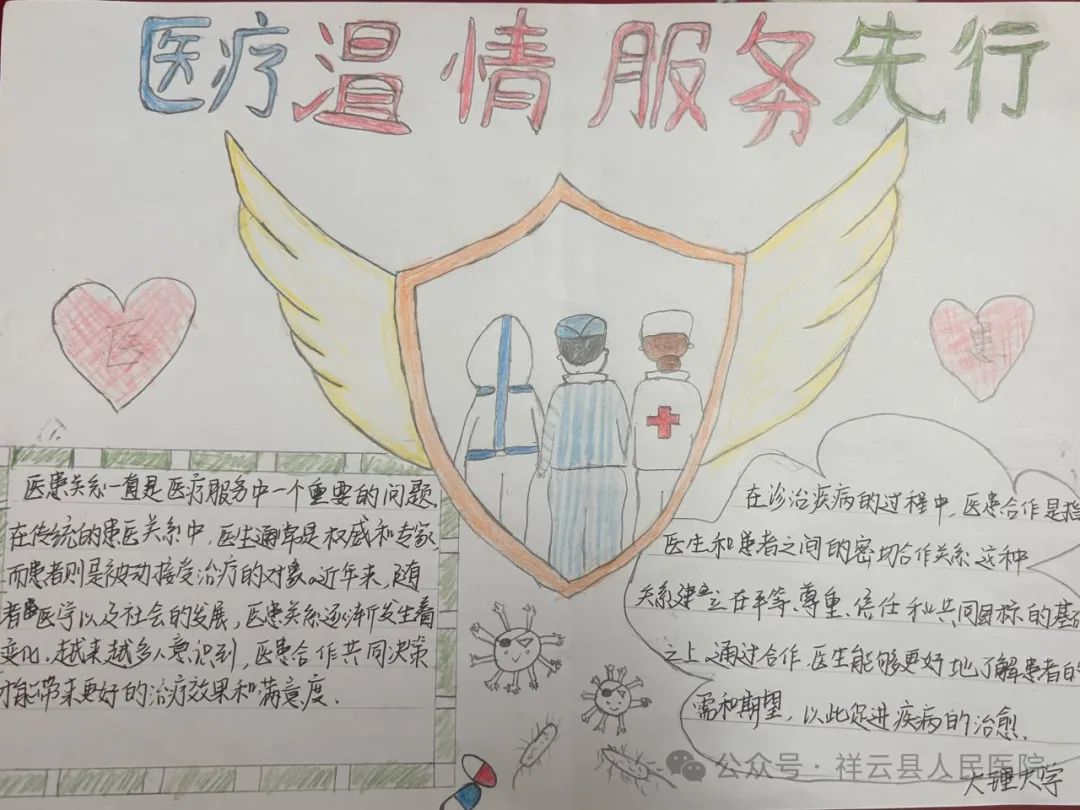 医疗温情服务先行
医
患
医患关系一直是医疗服务中一个重要的问题.
在传统的患医关系中,医生通常是权威和专家
而患者则是被动接受治疗的对象。近年来,随
着医学以及社会的发展,医患关系逐渐发生着
变化,越来越多人意识到,医患合作共同决策
才能带来更好的治疗效果和满意度.
在诊治疾病的过程中,医患合作是指
医生和患者之间的密切合作关系.这种
关系建立在平等、尊重、信任和共同目标的基础
之上。通过合作.医生能够更好地了解患者的
需和期望,以此促进疾病的治愈.
大理大学
公众号·祥云县人民医院